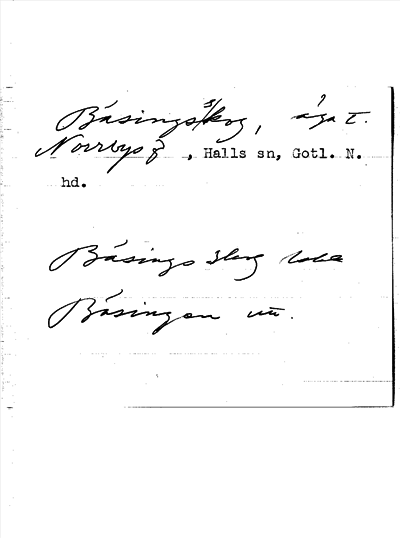 Båsingskog, äga t.
Norrbys , Halls sn, Gotl. N.
hd.
Båsings skog
Båsingen